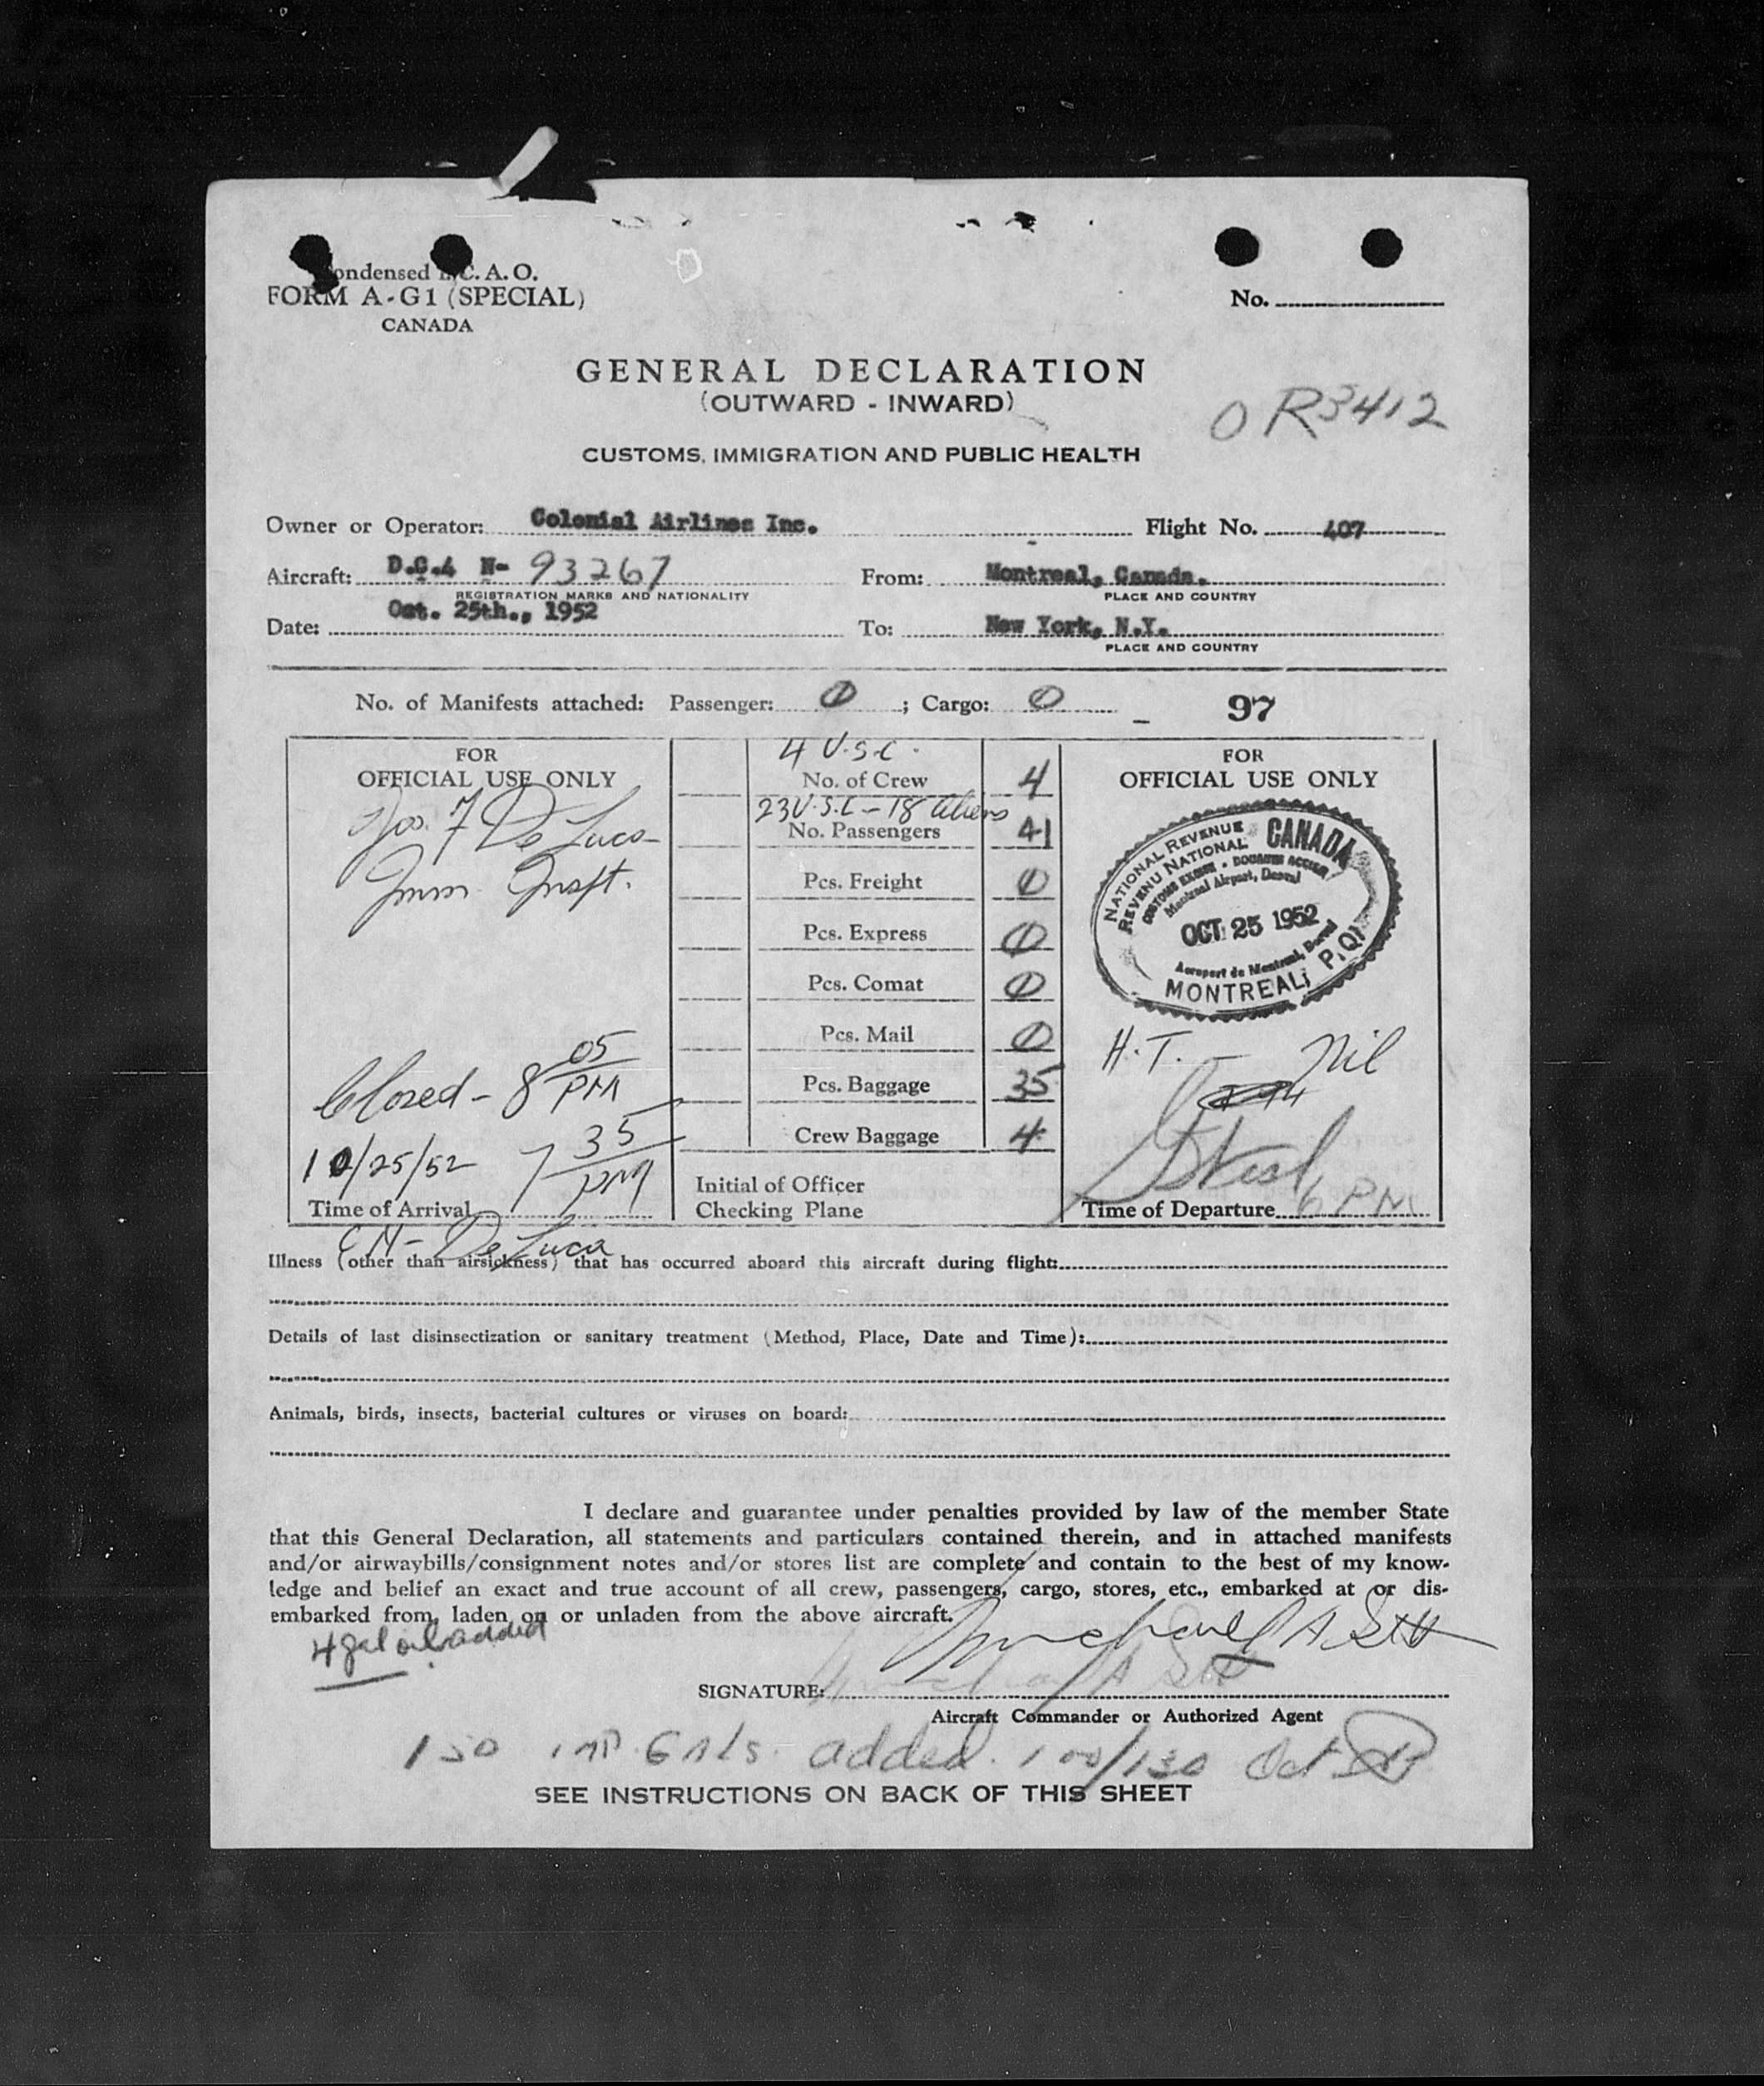 Condensed I.C.A.O.
FORM A-G1 (SPECIAL)
CANADA
No.
GENERAL DECLARATION
(OUTWARD - INWARD)
O R3412
CUSTOMS, IMMIGRATION AND PUBLIC HEALTH
Owner or Operator: Colonial Airlines Inc. Flight No. 407
Aircraft: D.C.4 N- 93267 From: Montreal, Canada.
REGISTRATION MARKS AND NATIONALITY PLACE AND COUNTRY
Date: Oct. 25th., 1952 To: New York, N.Y.
PLACE AND COUNTRY
No. of Manifests attached: Passenger: 0 ; Cargo: 0 97
FOR
OFFICIAL USE ONLY
Jos. F De Luca
Imm. Inspt.
Closed - 8 05 PM
10/25/52 7 35 PM
Time of Arrival
De Luca
4 U.S.C.
No. of Crew 4
23 U.S.C - 18 Aliens
No. Passengers 41
Pcs. Freight 0
Pcs. Express 0
Pcs. Comat 0
Pcs. Mail 0
Pcs. Baggage 35
Crew Baggage 4
Initial of Officer
Checking Plane
FOR
OFFICIAL USE ONLY
NATIONAL REVENUE CANADA
REVENU NATIONAL
CUSTOMS EXCISE - DOUANES ACCISE
Montreal Airport, Dorval
OCT 25 1952
Aeroport de Montreal, Dorval
MONTREAL, P.Q.
H.T. - Nil
Time of Departure 6 PM
Illness (other than airsickness) that has occurred aboard this aircraft during flight:
Details of last disinsectization or sanitary treatment (Method, Place, Date and Time):
Animals, birds, insects, bacterial cultures or viruses on board:
I declare and guarantee under penalties provided by law of the member State
that this General Declaration, all statements and particulars contained therein, and in attached manifests
and/or airwaybills/consignment notes and/or stores list are complete and contain to the best of my know-
ledge and belief an exact and true account of all crew, passengers, cargo, stores, etc., embarked at or dis-
embarked from, laden on or unladen from the above aircraft.
4 gal oil added
SIGNATURE:
Aircraft Commander or Authorized Agent
150 IMP. GALS. added. 100/130 Oct
SEE INSTRUCTIONS ON BACK OF THIS SHEET